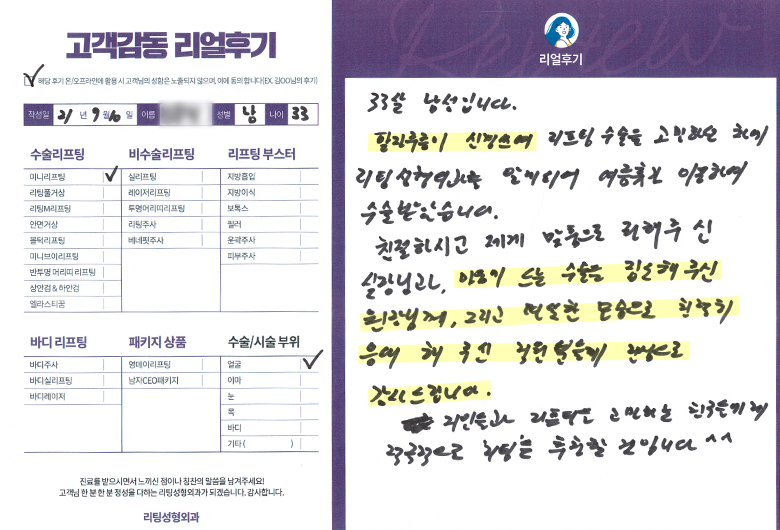 고객감동 리얼후기
해당 후기 온/오프라인에 활용 시 고객님의 성함은 노출되지 않으며, 이에 동의 합니다(EX. 김OO님의 후기)
작성일 21 년 9 월 10 일 이름 성별 남 나이 33
수술리프팅
미니리프팅
리팅풀거상
리팅M리프팅
안면거상
볼턱리프팅
미니브이리프팅
반투명 머리띠 리프팅
상안검 & 하안검
엘라스티꿈
비수술리프팅
실리프팅
레이저리프팅
투명머리띠리프팅
리팅주사
베네핏주사
리프팅 부스터
지방흡입
지방이식
보톡스
필러
윤곽주사
피부주사
바디 리프팅
바디주사
바디실리프팅
바디레이저
패키지 상품
영데이리프팅
남자CEO패키지
수술/시술 부위
얼굴
이마
눈
목
바디
기타 ( )
진료를 받으시면서 느끼신 점이나 칭찬의 말씀을 남겨주세요!
고객님 한 분 한 분 정성을 다하는 리팅성형외과가 되겠습니다. 감사합니다.
리팅성형외과
Review
리얼후기
33살 남성입니다.
팔자주름이 신경쓰여 리프팅 수술을 고민하던 차에
리팅성형외과를 알게되어 이용하여
수술받았습니다.
친절하시고 제게 맞춤으로 권해주신
실장님과, 수술을 집도해 주신
원장님께, 그리고 친절한
응대 해 주신 직원분들께 진심으로
감사드립니다.
지인들과 리프팅을 고민하는 친구들에게
적극적으로 리팅을 추천할 것입니다 ^^